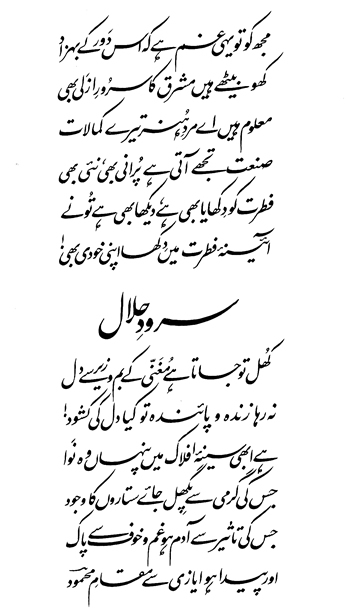 مجھ کو تو یہی غم ہے کہ اس دَور کے بہزاد
کھو بیٹھے ہیں مشرق کا سرورِ ازلی بھی
معلوم ہیں اے مردِ ہنر تیرے کمالات
صنعت تجھے آتی ہے پُرانی بھی، نئی بھی
فطرت کو دکھایا بھی ہے، دیکھا بھی ہے تُو نے
آئینۂ فطرت میں دکھا اپنی خودی بھی!
سرودِ حلال
کھُل تو جاتا ہے مُغنّی کے بم و زیر سے دل
نہ رہا زندہ و پائندہ تو کیا دل کی کشود!
ہے ابھی سینۂ افلاک میں پنہاں وہ نوا
جس کی گرمی سے پگھل جائے ستاروں کا وجود
جس کی تاثیر سے آدم ہو غم و خوف سے پاک
اور پیدا ہو ایازی سے مقامِ محمود